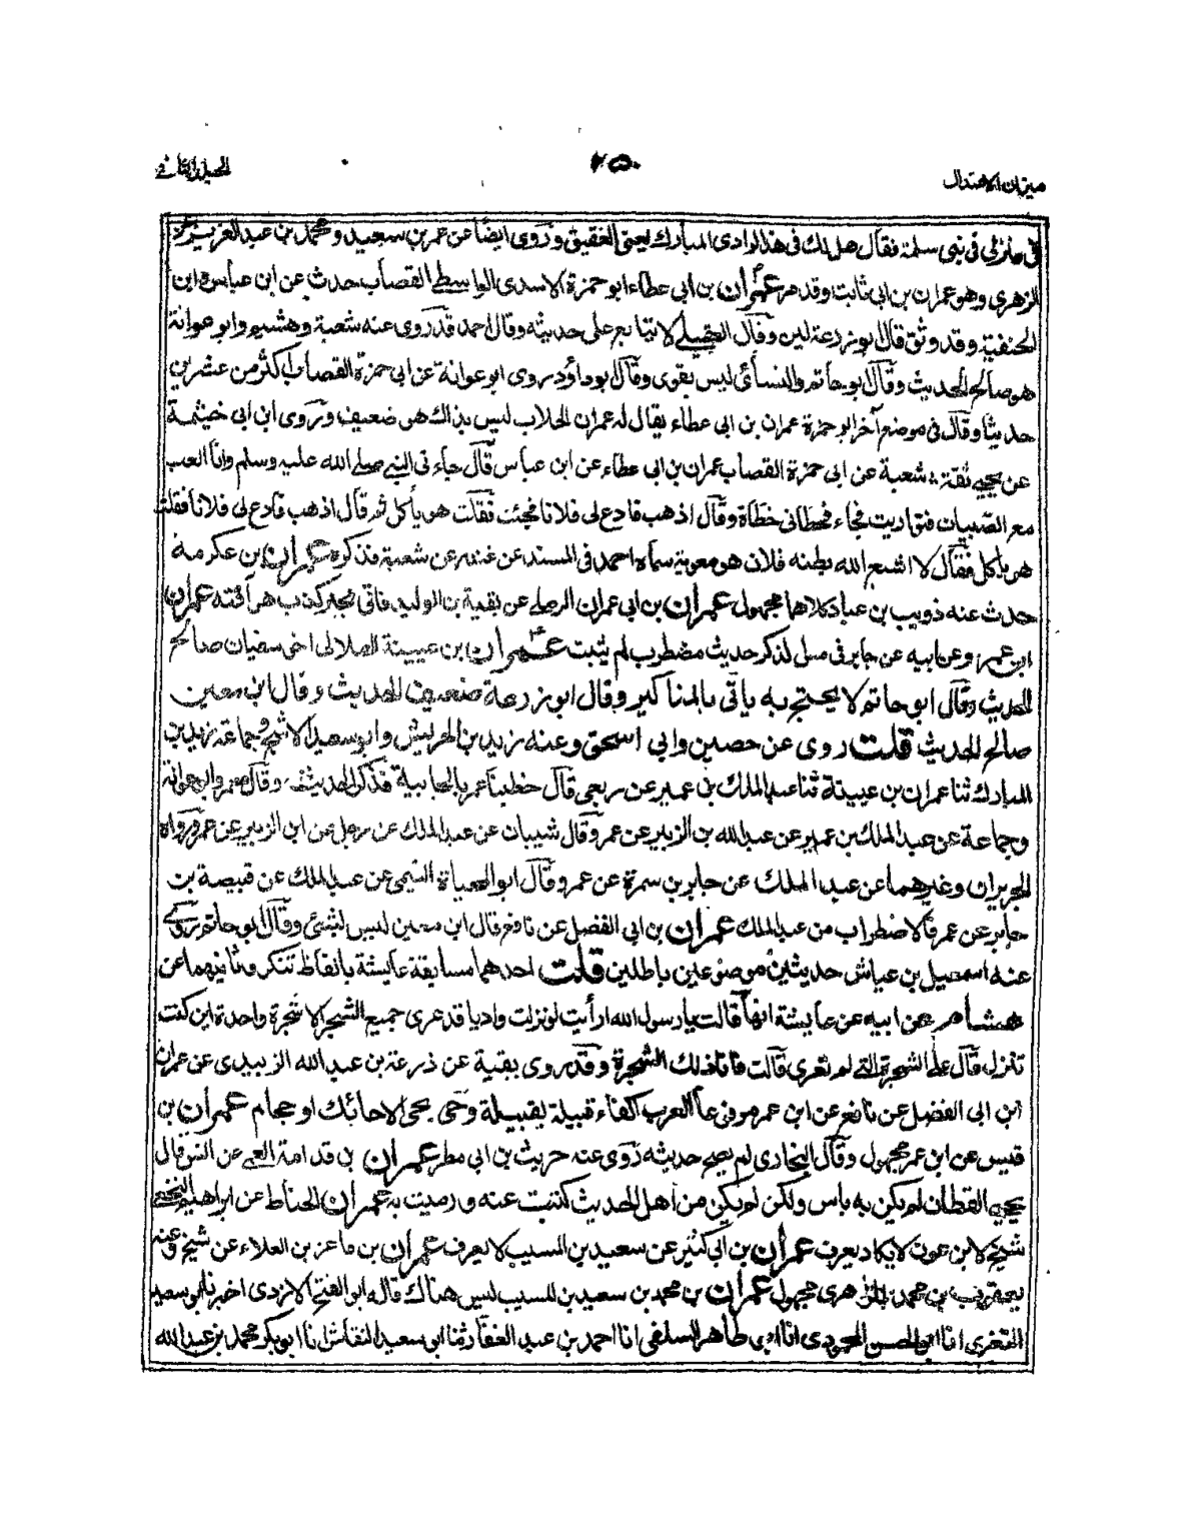 ميزان الاعتدال
٢٥٠
الجلد الثاني
في منزلي في بني سلمة فقال هل لك في هذا الوادي المبارك يعني العقيق وروى ايضا عن عمر بن سعيد ومحمد بن عبد العزيز
الزهري وهو عمران بن ابي ثابت وقد مر عمران بن ابي عطاء ابو حمزة الاسدي الواسطي القصاب حدث عن ابن عباس وابن
الحنفية وقد وثق قال ابو زرعة لين وقال العقيلي لا يتابع على حديثه وقال احمد قد روى عنه شعبة وهشيم وابو عوانة
هو صالح الحديث وقال ابو حاتم والنسائي ليس بقوي وقال ابو داؤد روى ابو عوانة عن ابي حمزة القصاب اكثر من عشرين
حديثا وقال في موضع آخر ابو حمزة عمران بن ابي عطاء يقال له عمران الجلاب ليس بذاك هو ضعيف وروى ابن ابي خيثمة
عن يحيى ثقة شعبة عن ابي حمزة القصاب عمران بن ابي عطاء عن ابن عباس قال جاء في النبي صلى الله عليه وسلم وانا العب
مع الصبيان فتواريت فجاء فحطاني حطاة وقال اذهب فادع لي فلانا فجئت فقلت هو يأكل ثم قال اذهب فادع لي فلانا فقلت
هو ياكل فقال لا اشبع الله بطنه فلان هو معوية سماه احمد في المسند عن عن شعبة فذكره عمران بن عكرمة
حدث عنه ذويب بن عباد كلاهما مجهول عمران بن ابي عمران الرملي عن بقية بن الوليد فاتي بخبر كذب هو آفته عمران
ابن عمرو عن ابيه عن جابر في ذكر حديث مضطرب لم يثبت عمران بن عيينة الهلالي اخي سفيان صالح
الحديث وقال ابو حاتم لا يحتج به ياتي بالمناكير وقال ابو زرعة ضعيف الحديث وقال ابن معين
صالح الحديث قلت روى عن حصين وابي اسحق وعنه زيد بن الحريش وابو سعيد الاشج وجماعة زيد بن
المبارك ثنا عمران بن عيينة ثنا عبد الملك بن عمير عن ربعي قال خطبنا عمر بالجابية فذكر الحديث وقال معمر وابو عوانة
وجماعة عن عبد الملك بن عمير عن عبد الله بن الزبير عن عمر وقال شيبان عن عبد الملك عن رجل عن ابن الزبير عن عمر ورواه
الجريران وغيرهما عن عبد الملك عن جابر بن سمرة عن عمر وقال ابو المحياة التيمي عن عبد الملك عن قبيصة بن
جابر عن عمر فالاضطراب من عبد الملك عمران بن ابي الفضل عن نافع قال ابن معين ليس بشئ وقال ابو حاتم روى
عنه اسمعيل بن عياش حديثين موضوعين باطلين قلت احدهما مسابقة عايشة بالفاظ تنكر وثانيهما عن
هشام عن ابيه عن عايشة انها قالت يا رسول الله ارأيت لو نزلت واديا قد عري جميع الشجر الا شجرة واحدة اين كنت
تنزل قال على الشجرة التي لم تعرى قالت فانا تلك الشجرة وقد روى بقية عن زرعة بن عبد الله الزبيدي عن عمران
ابن ابي الفضل عن نافع عن ابن عمر مرفوعا العرب كفاء قبيلة بقبيلة وحي بحي الا حائك او حجام عمران بن
قيس عن ابن عمر مجهول وقال البخاري لم يصح حديثه روى عنه حريث بن ابي مطر عمران بن قدامة العمي عن انس قال
يحيى القطان لم يكن به باس ولكن لم يكن من اهل الحديث كتبت عنه ورميت به عمران الخياط عن ابراهيم النخعي
شيخ لابن عون لا يكاد يعرف عمران بن ابي كثير عن سعيد بن المسيب لا يعرف عمران بن ماعز بن العلاء عن شيخ وعنه
يعقوب بن محمد الزهري مجهول عمران بن محمد بن سعيد بن المسيب ليس هناك قاله ابو الفتح الازدي اخبرنا ابو سعيد
الثغري انا ابو الحسن المحمودي انا ابو طاهر السلفي انا احمد بن عبد الغفار ثنا ابو سعيد النقاش انا ابو بكر محمد بن عبد الله